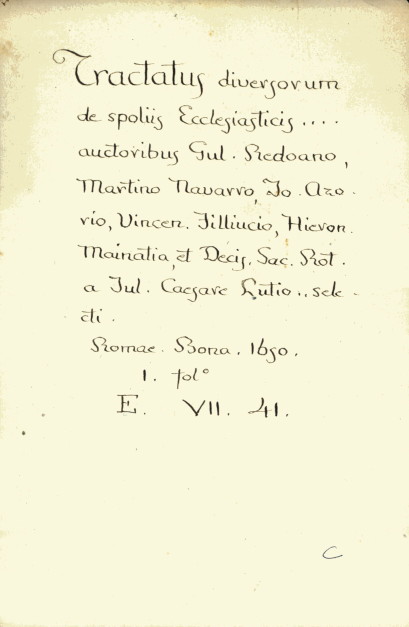 Tractatus diversorum
de spoliis Ecclesiasticis ....
auctoribus Gul. Redoano,
Martino Navarro, Jo. Azo-
rio, Vincen. Filliucio, Hieron.
Mainatia, et Decis. Sac. Rot.
a Jul. Caesare Rutio., sele-
cti.
Romae. Bona. 1650.
1. fol°
E. VII. 41.
C